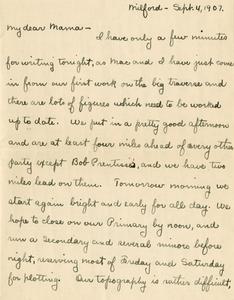 Milford - Sept. 4, 1907.
My dear Mama -
I have only a few minutes
for writing tonight, as Mac and I have just come
in from our first work on the big traverse and
there are lots of figures which need to be worked
up to date. We put in a pretty good afternoon
and are at least four miles ahead of every other
party except Bob Prentiss's, and we have two
miles lead on them. Tomorrow morning we
start again bright and early for all day. We
hope to close on our Primary by noon, and
run a Secondary and several minors before
night, reserving most of Friday and Saturday
for plotting. Our topography is rather difficult,